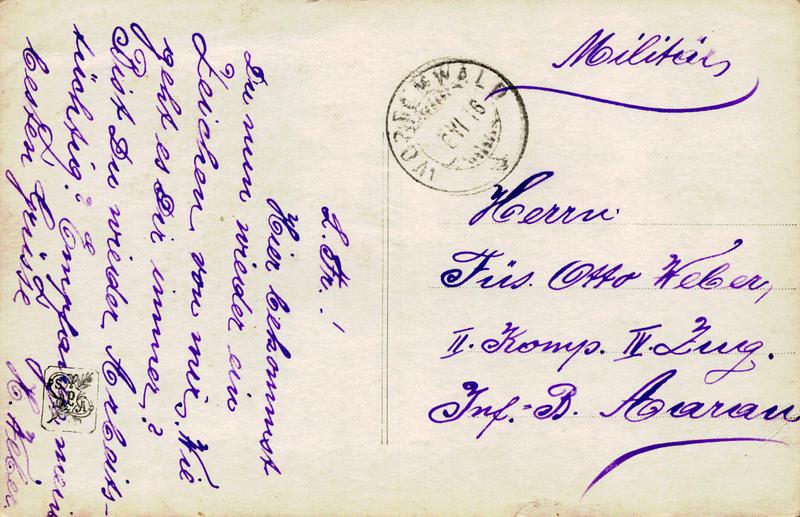 Militär
WORDEMWALD
VI 16
Herrn
Füs. Otto Weber,
II. Komp. IV. Zug.
Inf.-B. Aarau
L. Fr.!
Hier bekommst
Du nun wieder ein
Zeichen von mir. Wie
geht es Dir immer?
Bist Du wieder Arbeits-
tüchtig? Empfange mein
besten Grüsse
H. Weber